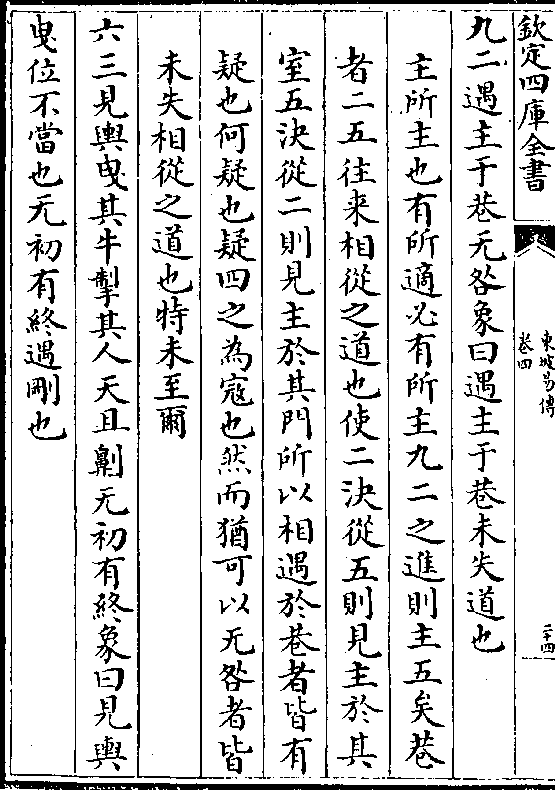 欽定四庫全書
東坡易傳
卷四
二十四
九二遇主于巷无咎象曰遇主于巷未失道也
主所主也有所適必有所主九二之進則主五矣巷
者二五往来相從之道也使二決從五則見主於其
室五決從二則見主於其門所以相遇於巷者皆有
疑也何疑也疑四之為寇也然而猶可以无咎者皆
未失相從之道也特未至爾
六三見輿曳其牛掣其人天且劓无初有終象曰見輿
曳位不當也无初有終遇剛也